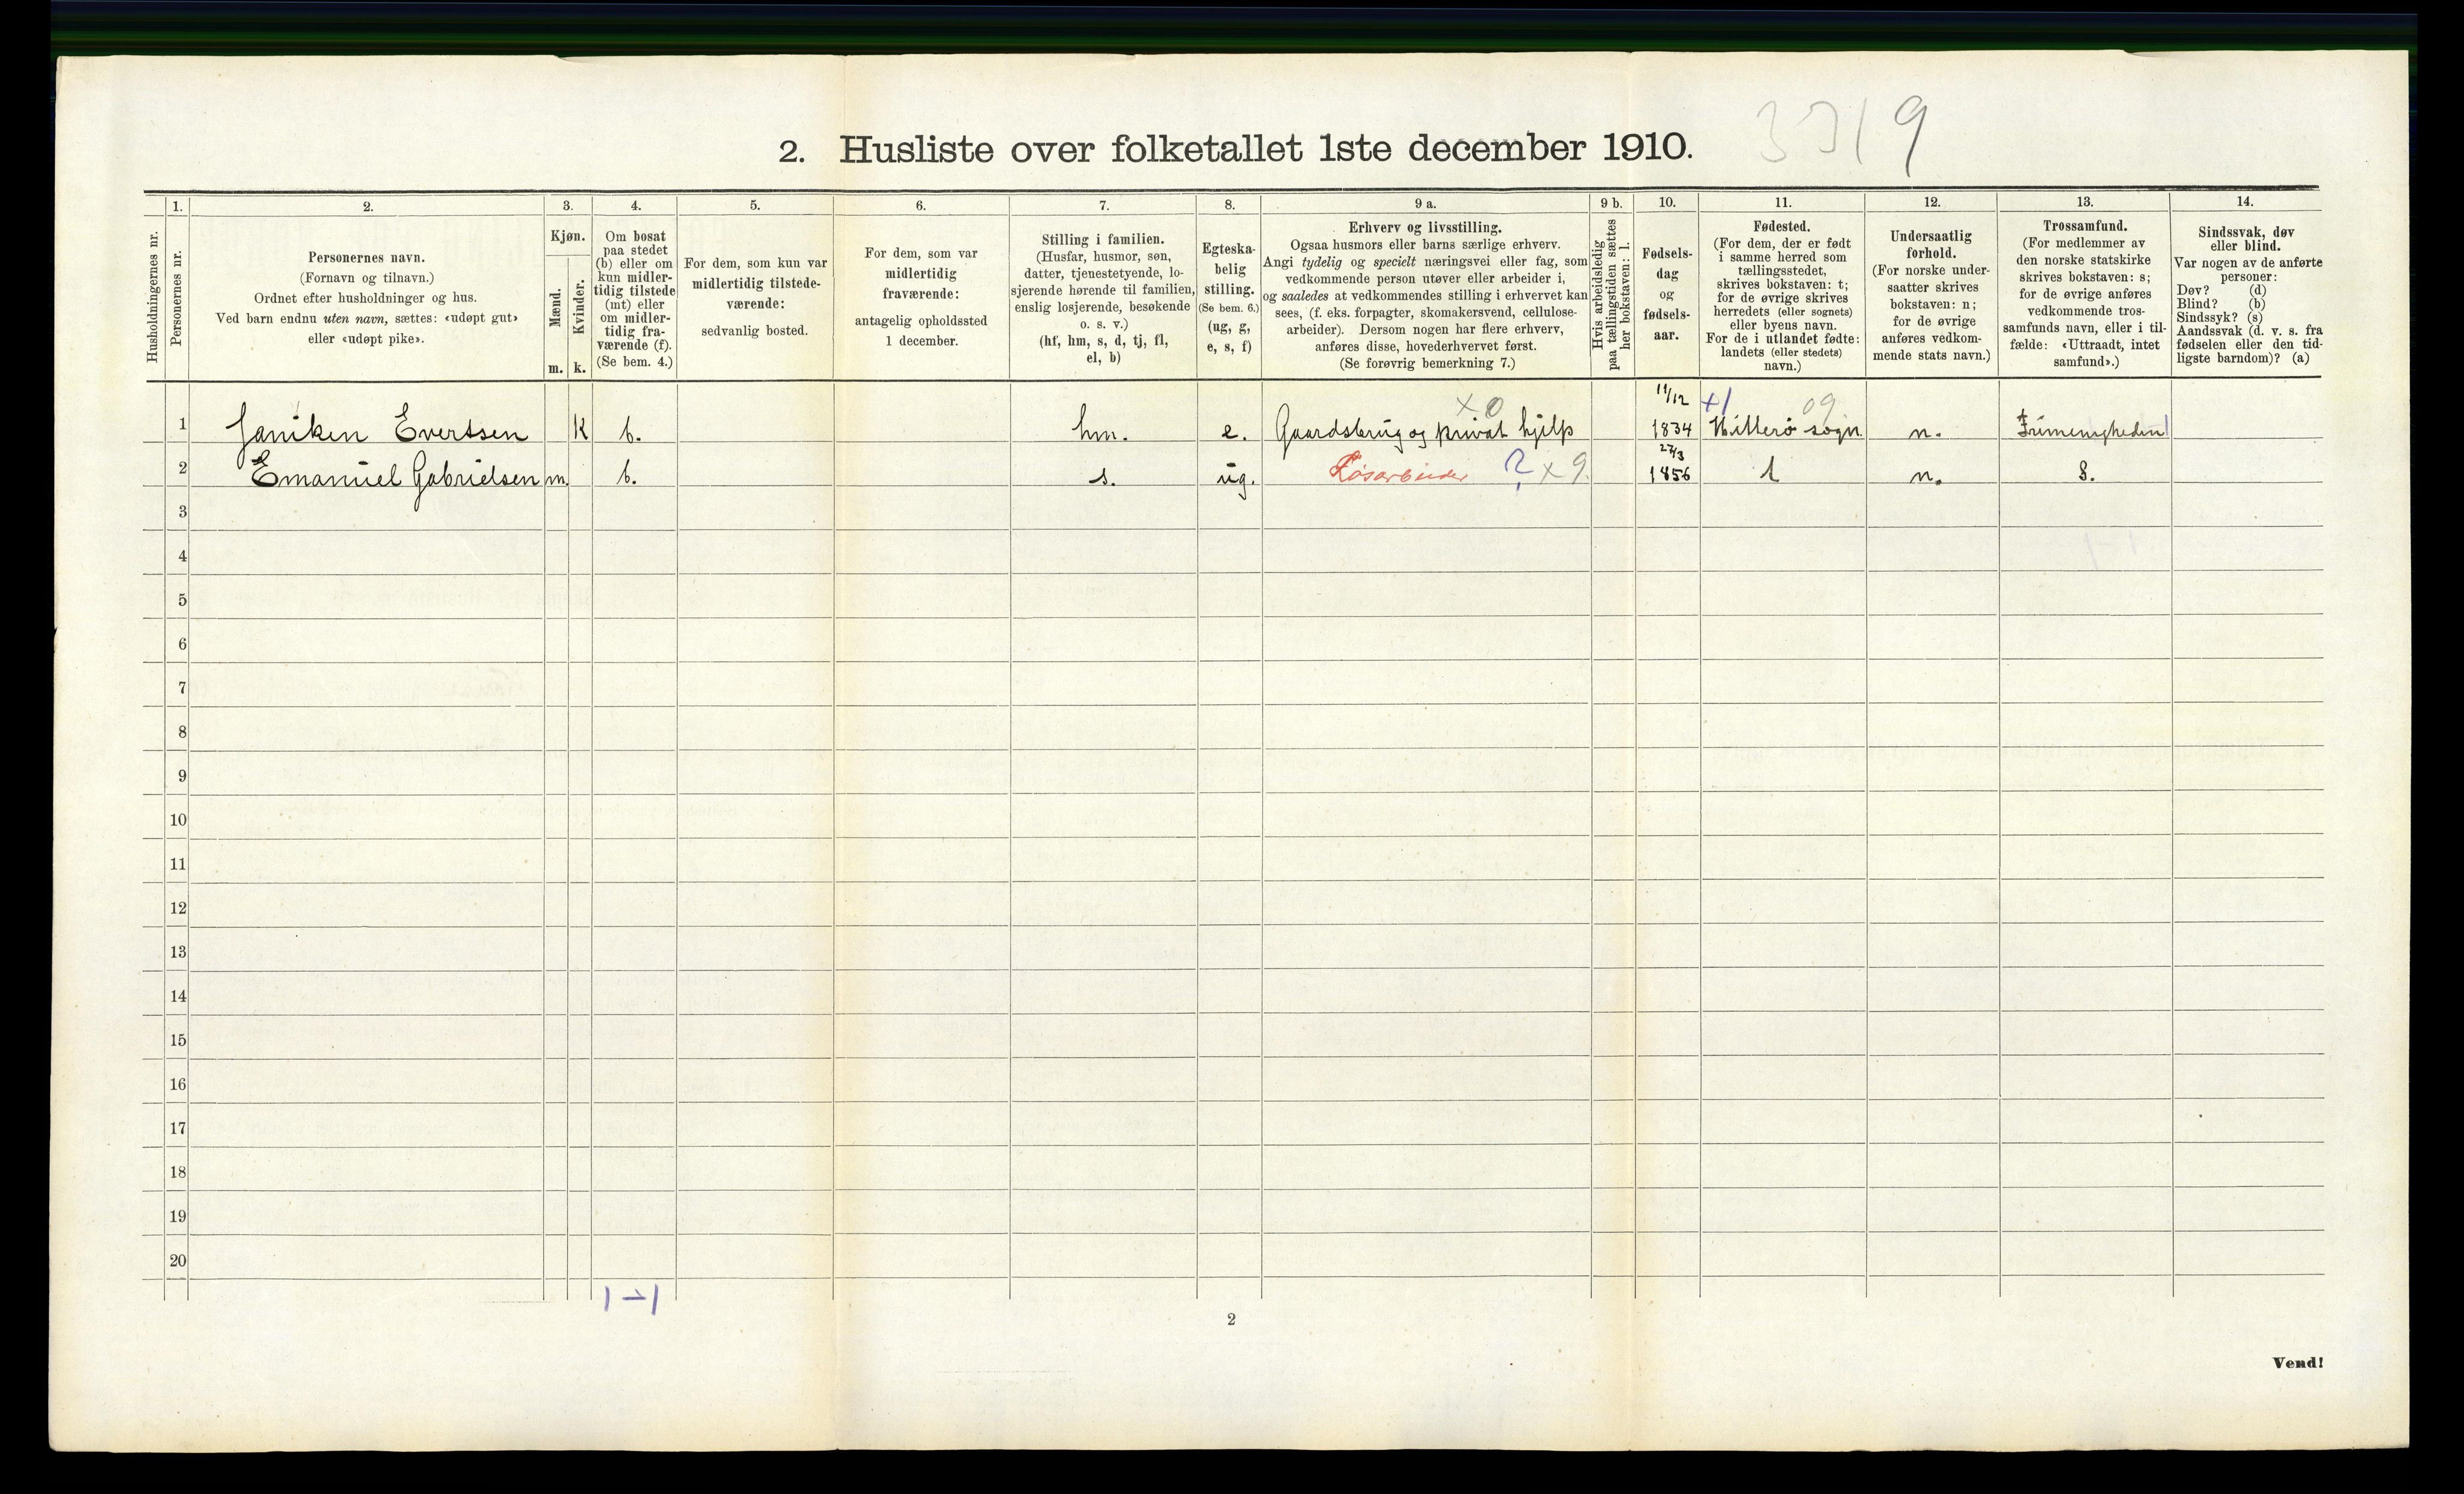 3319
2. Husliste over folketallet 1ste december 1910.
Husholdningernes nr.
1.
Personernes nr.
2.
Personernes navn.
(Fornavn og tilnavn.)
Ordnet efter husholdninger og hus.
Ved barn endnu uten navn, sættes: «udøpt gut»
eller «udøpt pike».
3.
Kjøn.
Mænd.
Kvinder.
m. k.
4.
Om bosat
paa stedet
(b) eller om
kun midler-
tidig tilstede
(mt) eller
om midler-
tidig fra-
værende (f).
(Se bem. 4.)
5.
For dem, som kun var
midlertidig tilstede-
værende:
sedvanlig bosted.
6.
For dem, som var
midlertidig
fraværende:
antagelig opholdssted
1 december.
7.
Stilling i familien.
(Husfar, husmor, søn,
datter, tjenestetyende, lo-
sjerende hørende til familien,
enslig losjerende, besøkende
o. s. v.)
(hf, hm, s, d, tj, fl,
el, b)
8.
Egteska-
belig
stilling.
(Se bem. 6.)
(ug, g,
e, s, f)
9 a.
Erhverv og livsstilling.
Ogsaa husmors eller barns særlige erhverv.
Angi tydelig og specielt næringsvei eller fag, som
vedkommende person utøver eller arbeider i,
og saaledes at vedkommendes stilling i erhvervet kan
sees, (f. eks. forpagter, skomakersvend, cellulose-
arbeider). Dersom nogen har flere erhverv,
anføres disse, hovederhvervet først.
(Se forøvrig bemerkning 7.)
9 b.
Hvis arbeidsledig
paa tællingstiden sættes
her bokstaven: l.
10.
Fødsels-
dag
og
fødsels-
aar.
11.
Fødested.
(For dem, der er født
i samme herred som
tællingsstedet,
skrives bokstaven: t;
for de øvrige skrives
herredets (eller sognets)
eller byens navn.
For de i utlandet fødte:
landets (eller stedets)
navn.)
12.
Undersaatlig
forhold.
(For norske under-
saatter skrives
bokstaven: n;
for de øvrige
anføres vedkom-
mende stats navn.)
13.
Trossamfund.
(For medlemmer av
den norske statskirke
skrives bokstaven: s;
for de øvrige anføres
vedkommende tros-
samfunds navn, eller i til-
fælde: «Uttraadt, intet
samfund».)
14.
Sindssvak, døv
eller blind.
Var nogen av de anførte
personer:
Døv? (d)
Blind? (b)
Sindssyk? (s)
Aandssvak (d. v. s. fra
fødselen eller den tid-
ligste barndom)? (a)
x0 11/12 +1 09
1 Janiken Evertsen K b. hm. e. Gaardsbrug og privat hjelp 1834 Hitterø sogn. n. Frimenigheden
27/3
2 Emanuel Gabrielsen m. b. s. ug. Løsarbeider ? x9. 1856 t n. S.
3
4
5
6
7
8
9
10
11
12
13
14
15
16
17
18
19
20
1-1
2
Vend!